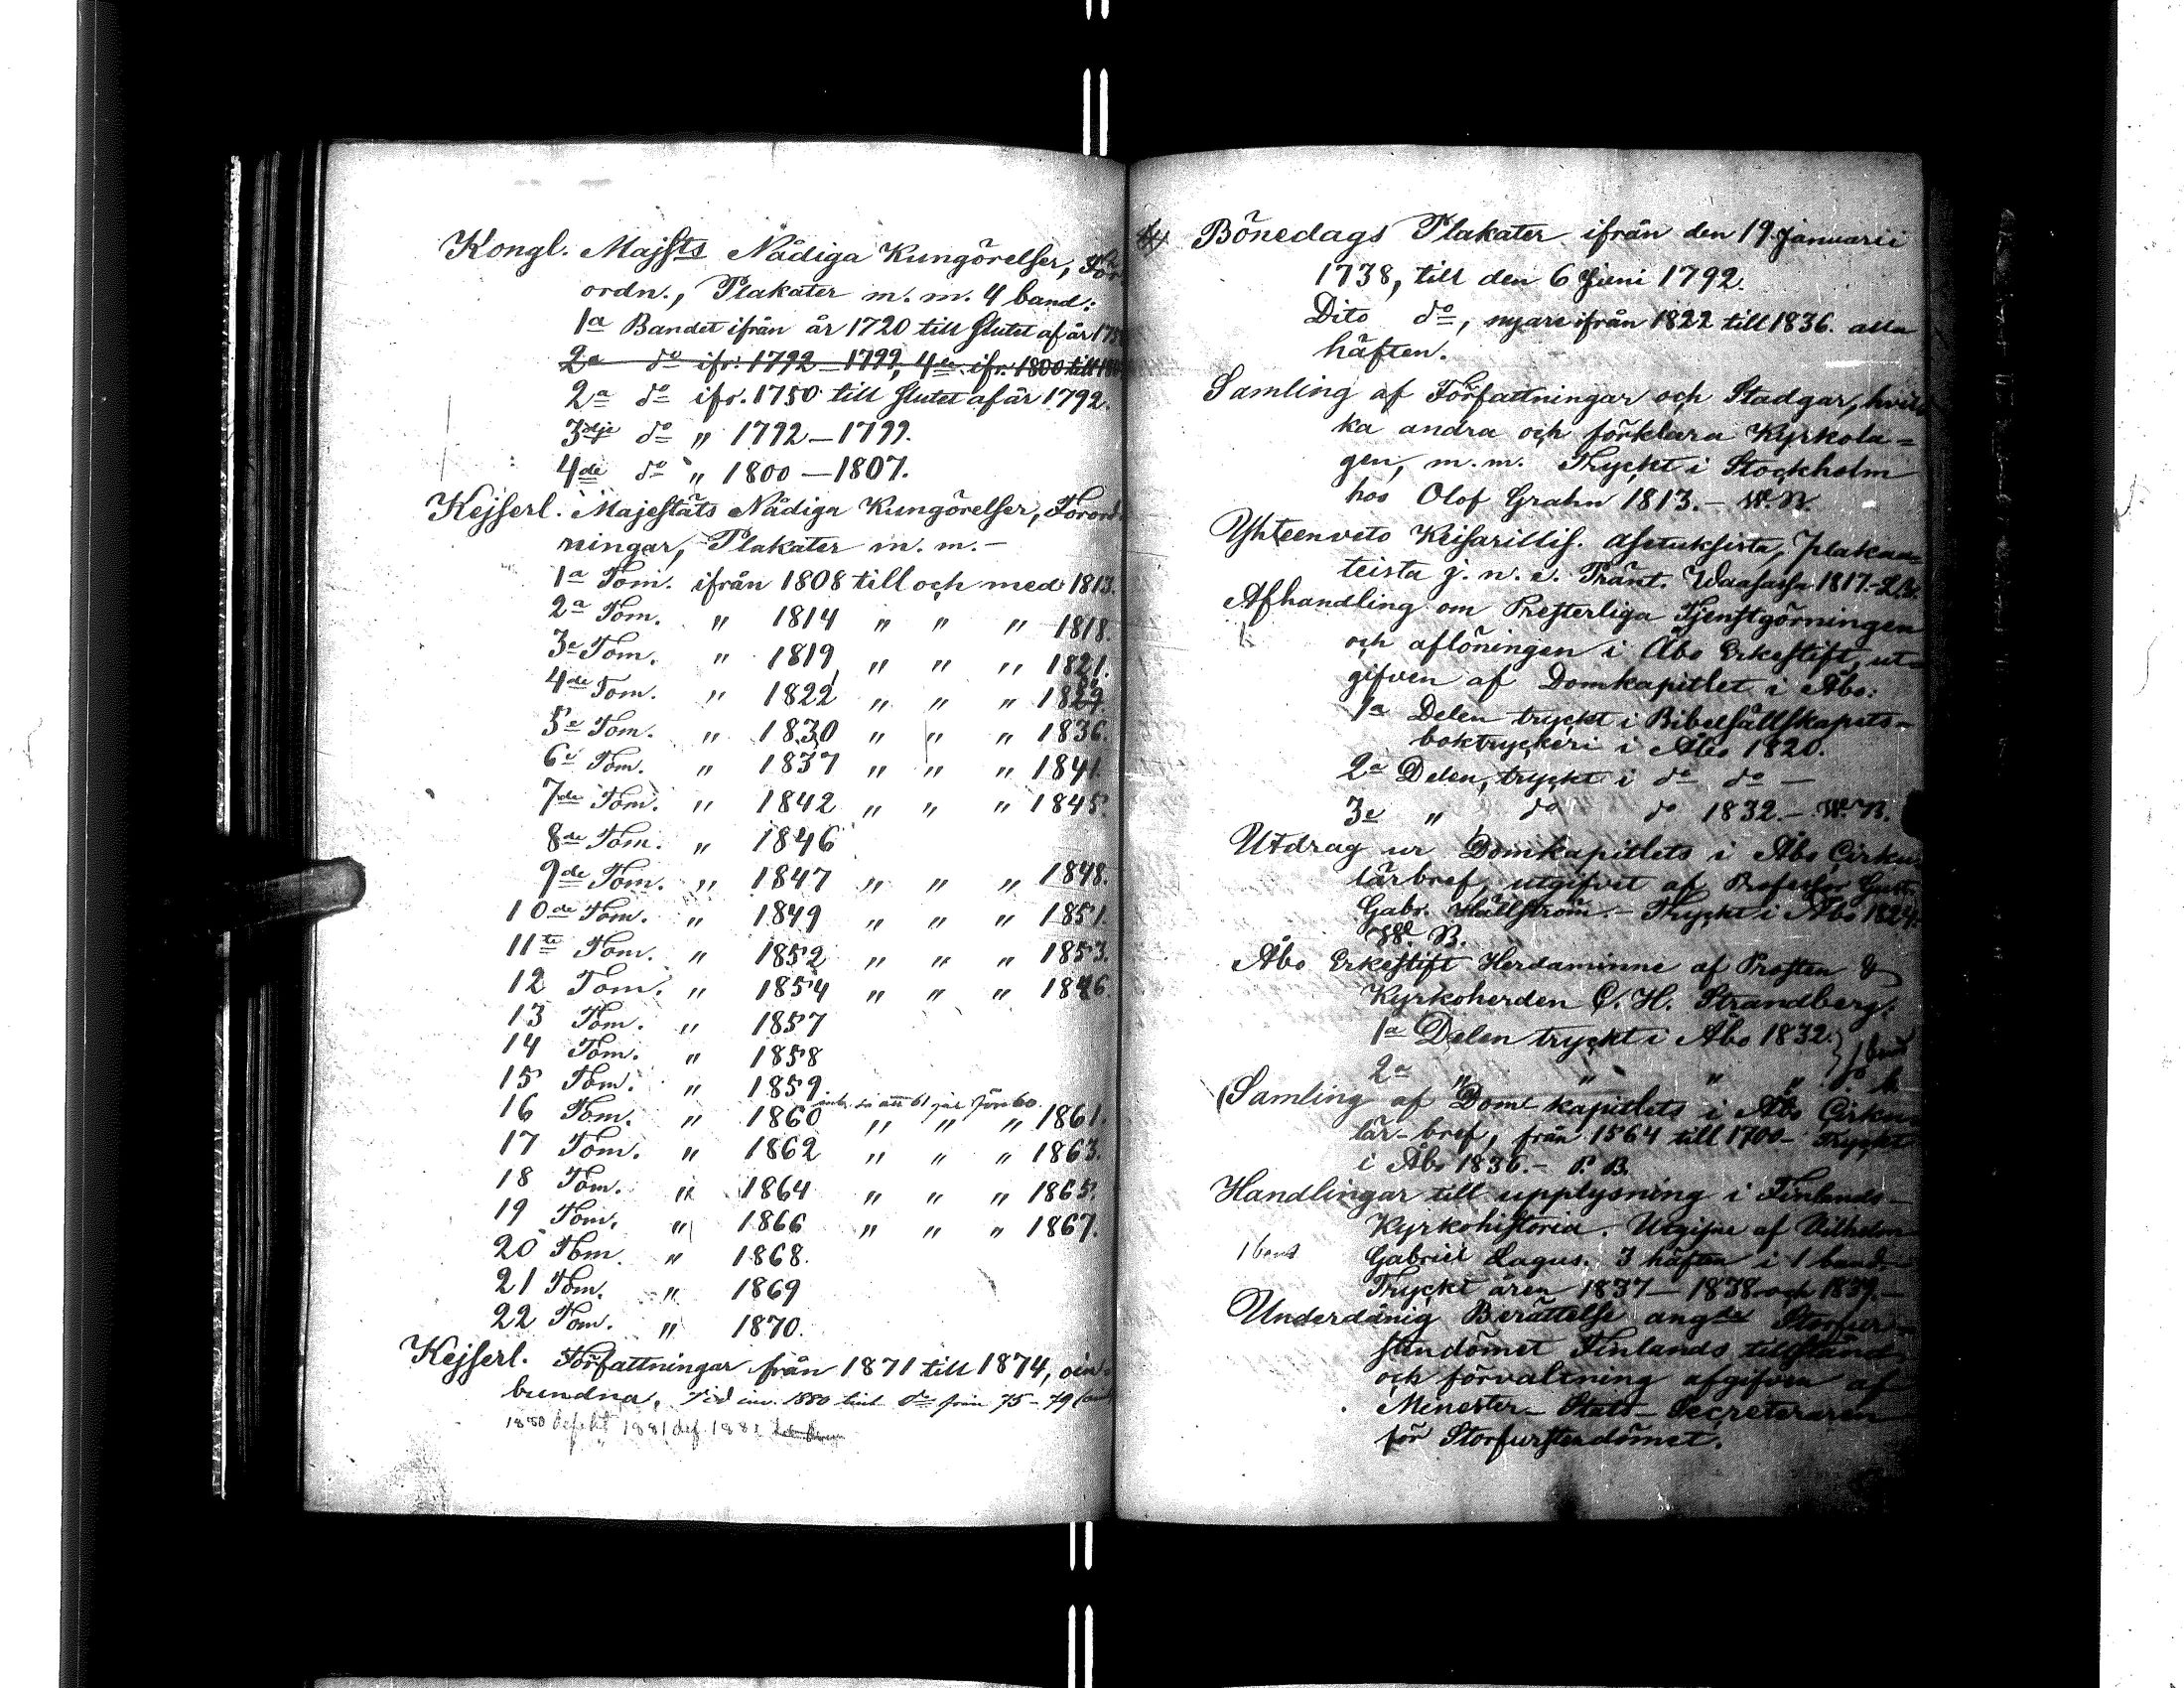 Kongl. Majsts Nådiga Kungörelser, För
ordn., Plakater m. m. 4 band:
1a Bandet ifrån år 1720 till slutet af år 175
2a do ifr. 1792–1799, 4de ifr. 1800 till 180
2a do ifr. 1750 till slutet af år 1792.
3dje do " 1792–1799.
4de do " 1800–1807.
Kejserl. Majestäts Nådiga Kungörelser, Förord-
ningar, Plakater m. m.–
1a Tom. ifrån 1808 till och med 1813.
2a Tom. " 1814 " " " 1818.
3e Tom. " 1819 " " " 1821.
4de Tom. " 1822 " " " 1829.
5e Tom. " 1830 " " " 1836.
6e Tom. " 1837 " " " 1841.
7de Tom. " 1842 " " " 1845.
8de Tom. " 1846
9de Tom. " 1847 " " " 1848.
10de Tom. " 1849 " " " 1851.
11te Tom. " 1852 " " " 1853.
12 Tom. " 1854 " " " 1846.
13 Tom. " 1857
14 Tom. " 1858
15 Tom. " 1859
så att 61 går för 60.
16 Tom. " 1860 " " " 1861.
17 Tom. " 1862 " " " 1863.
18 Tom. " 1864 " " " 1865.
19 Tom. " 1866 " " " 1867.
20 Tom. " 1868.
21 Tom. " 1869
22 Tom. " 1870.
Kejserl. Författningar från 1871 till 1874, oin-
bundna, Vid inv. 1880 do från 75–79
1880 defekt 1881 def. 1882
Bönedags Plakater ifrån den 19 Januarii
1738, till den 6 Juni 1792.
Dito do, nyare ifrån 1822 till 1836. alla
häften.
Samling af Författningar och Stadgar, hvil
ka andra och förklara Kyrkola=
gen, m. m. Tryckt i Stockholm
hos Olof Grahn 1813.– W. B.
Yhteenveto Keisarillis. Asetuksista, plakaa
teista j. n. e. Pränt. Waasassa 1817.–
Afhandling om Presterliga Tjenstgörningen
och aflöningen i Åbo Erkestift, ut-
gifven af Domkapitlet i Åbo:
1a Delen tryckt i Bibelsällskapets-
boktryckeri i Åbo 1820.
2a Delen, tryckt i do do –
3e " do do 1832.– W. B.
Utdrag ur Domkapitlets i Åbo Cirku-
lärbref, utgifvet af Professor Gust.
Gabr. Hällström.– Tryckt i Åbo 1824.
W. B.
Åbo Erkestift Herdaminne af Prosten &
Kyrkoherden C. H. Strandberg:
1a Delen tryckt i Åbo 1832. } 1 band
2a " " " "
Samling af Dom kapitlets i Åbo Cirku-
lär-bref, från 1564 till 1700– Tryckt
i Åbo 1836.– P. B.
Handlingar till upplysning i Finlands–
Kyrkohistoria. Utgifne af Vilhelm
1 band Gabriel Lagus. 3 häften i 1 band.–
Tryckt åren 1837–1838 och 1839.–
Underdånig Berättelse angde Storfur-
stendömet Finlands tillstånd
och förvaltning afgifven af
Minester-Stats-Secreteraren
för Storfurstendömet.